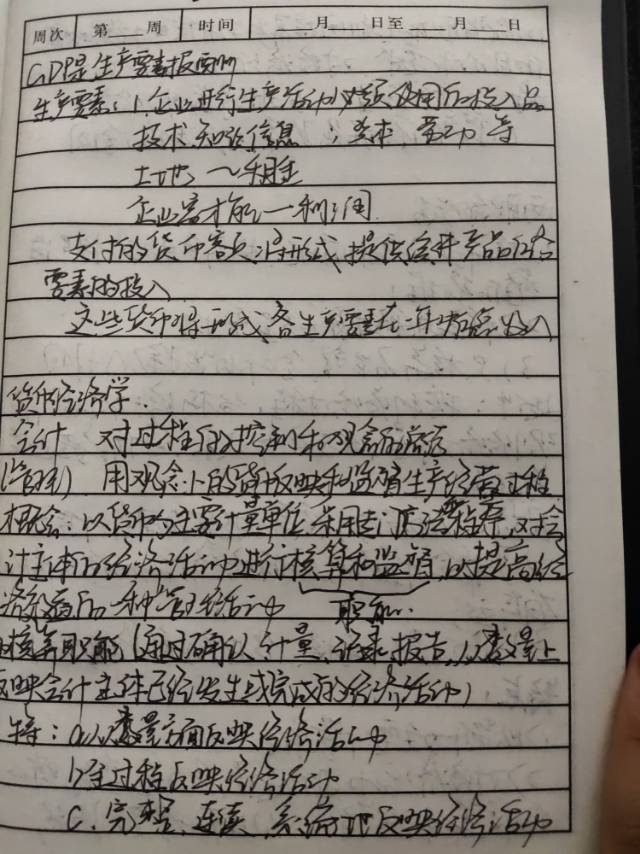 周次 第 周 时间 月 日至 月 日
GDP是生产要素报酬
生产要素：1.企业进行生产活动必须使用的投入品
技术 知识 信息；资本 劳动 等
土地～租金
企业家才能—利润
支付的货币 将形式 提供这种产品
要素的投入
这些货币将形成各生产要素在一年 收入
货币经济学
会计 对过程的控制和观念的总结
(管理) 用观念上的货币反映和监督生产经营过程
概念：以货币为主要计量单位 采用专门 程序，对会
计主体的经济活动进行核算和监督，以提高经
济效益的一种管理活动 职能
核算职能(通过确认、计量、记录、报告，从数量上
反映会计主体已经发生或完成的经济活动)
特：a.从数量方面反映经济活动
b.全过程反映经济活动
c.完整、连续、系统地反映经济活动